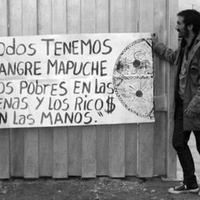 ODOS TENEMOS
ANGRE MAPUCHE
OS POBRES EN LAS
ENAS Y LOS RICO$
N LAS MANOS."